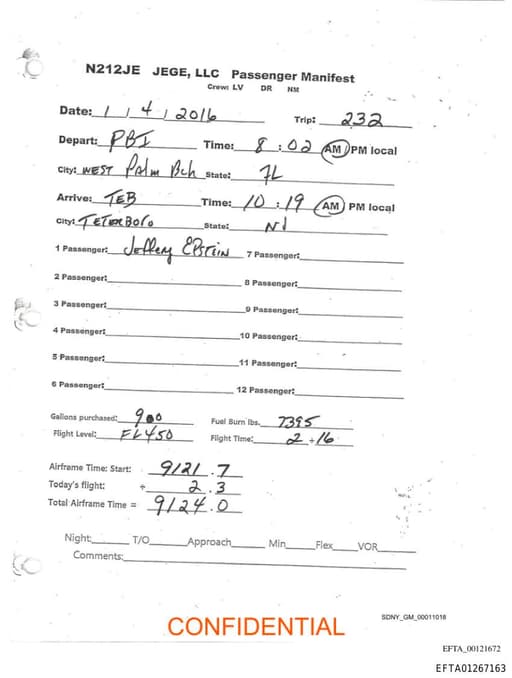 N212JE JEGE, LLC Passenger Manifest
Crew: LV DR NM
Date: 1 / 4 / 2016 Trip: 232
Depart: PBI Time: 8 : 02 AM/PM local
City: WEST Palm Bch State: FL
Arrive: TEB Time: 10 : 19 AM PM local
City: TETERBORO State: NJ
1 Passenger: Jeffery EPSTEIN 7 Passenger:
2 Passenger: 8 Passenger:
3 Passenger: 9 Passenger:
4 Passenger: 10 Passenger:
5 Passenger: 11 Passenger:
6 Passenger: 12 Passenger:
Gallons purchased: 900 Fuel Burn lbs. 7395
Flight Level: FL450 Flight Time: 2 + 16
Airframe Time: Start: 9121.7
Today's flight: + 2.3
Total Airframe Time = 9124.0
Night: T/O Approach Min Flex VOR
Comments:
CONFIDENTIAL
SDNY_GM_00011018
EFTA_00121672
EFTA01267163